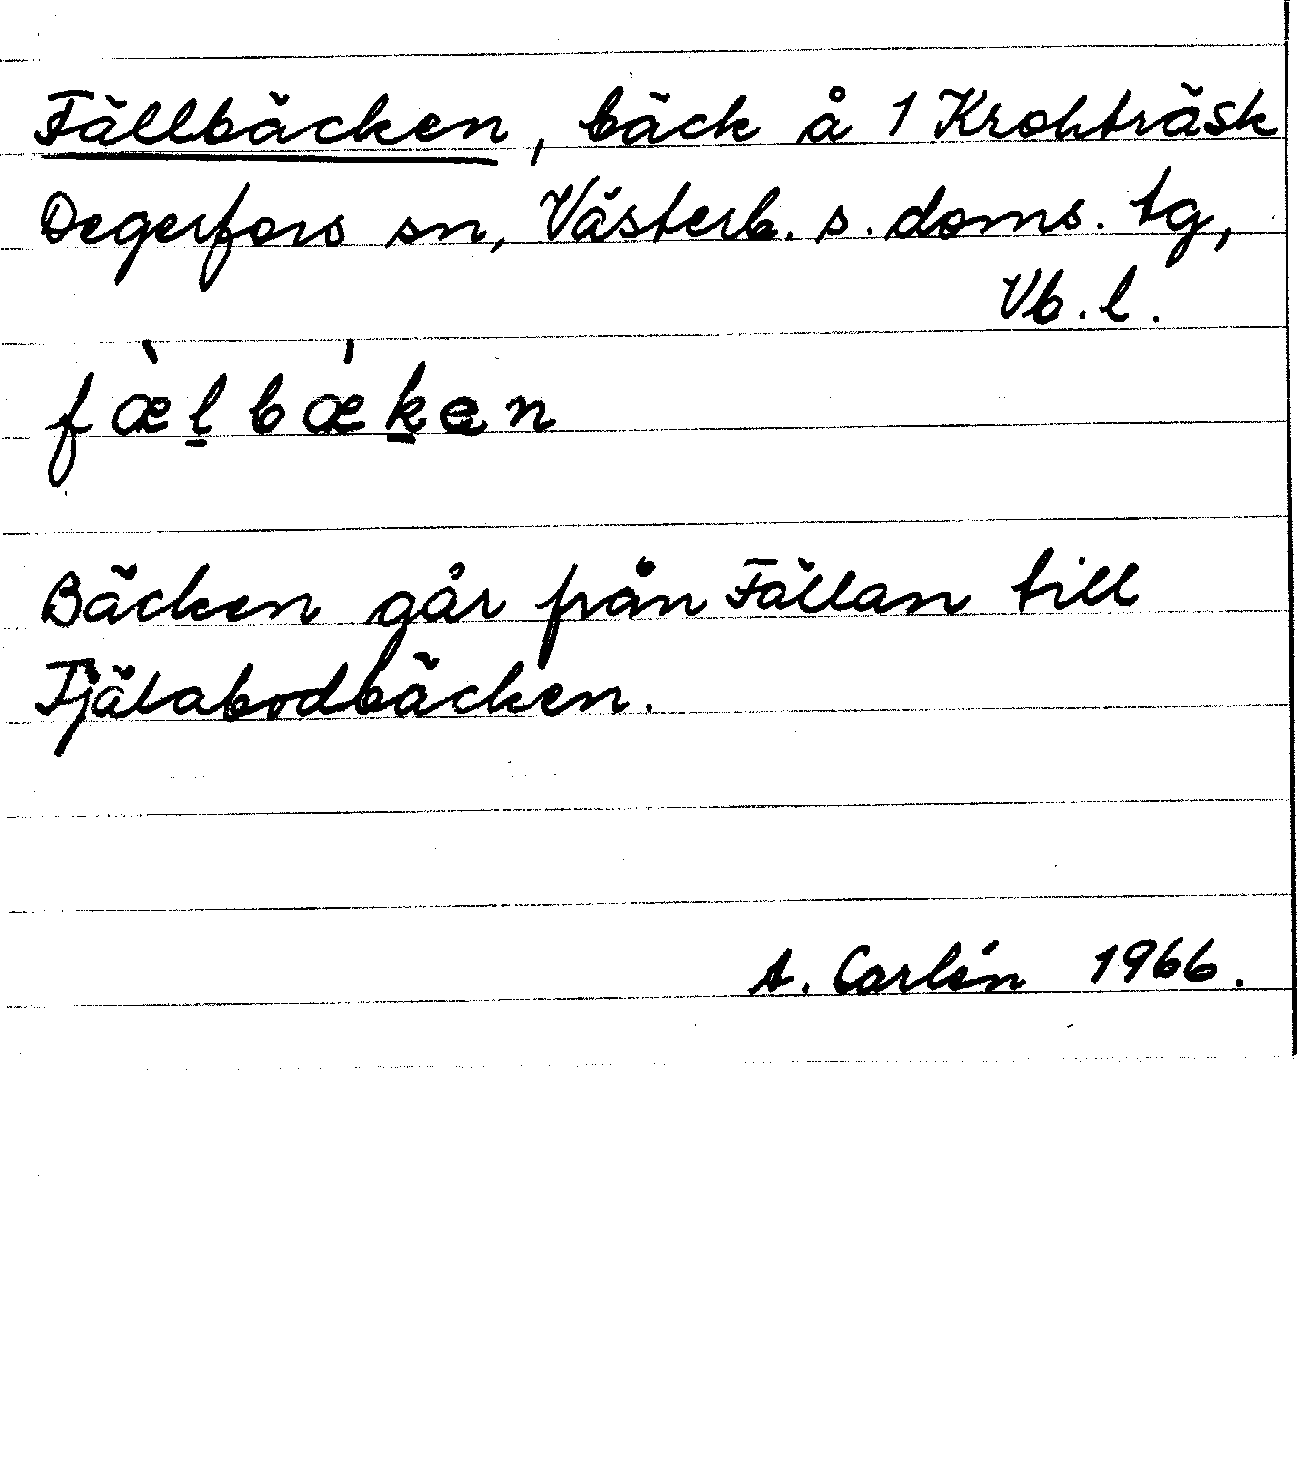 Fällbäcken, bäck å 1 Krokträsk
Degerfors sn, Västerb. s. doms. tg,
Vb. l.
fæ̀l̠bǽk̠en
Bäcken går från Fällan till
Tjälabodbäcken.
A. Carlén 1966.